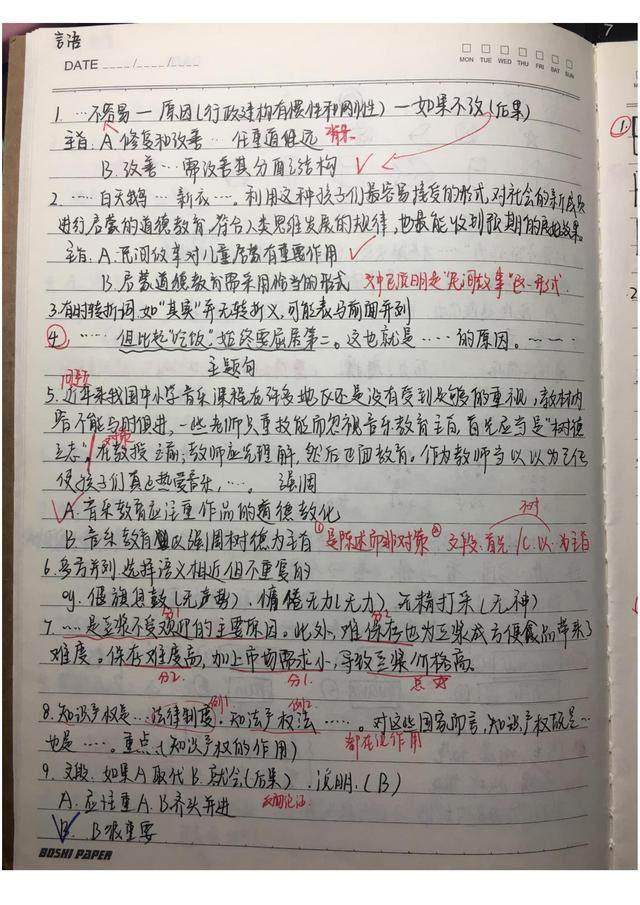 言语
DATE ____/____/____
MON TUE WED THU FRI SAT SUN
1. …不容易 — 原因(行政建构有惯性和刚性) — 如果不改(后果)
主旨: A. 修复和改善… 任重道远
B. 改善… 需改善其分配结构 ✓
2. …… 白天鹅… 新衣…。利用这种孩子们最容易接受的形式,对社会的新成员
进行启蒙的道德教育,符合人类思维发展的规律,也最能收到预期的效果。
主旨: A. 民间故事对儿童启蒙有重要作用 ✓
B. 启蒙道德教育需采用恰当的形式 文中已说明是"民间故事"这一形式
3. 有时转折词,如"其实"并无转折义,可能表与前面并列
④ …… 但比起"吃饭",始终要屈居第二。这也就是……的原因。……
主题句
问题
5. 近年来我国中小学音乐课程在许多地区还是没有受到足够的重视,教材内
容不能与时俱进,一些老师只重技能而忽视音乐教育主旨,首先应当是"树德
立志"。在教授之前,教师应先理解,然后正面教育。作为教师当以以为己任
对策
使孩子们真正热爱音乐,…。 强调
✓ A. 音乐教育应注重作品的道德教化
B. 音乐教育应以强调树德为主旨 ①是陈述而非对策 ②文段:首先 以 为主旨
6. 多方并列,选择语义相近但不重复的
eg. 偃旗息鼓(无声势)、慵倦无力(无力) 无精打采(无神)
分1 分2
7. ……是豆浆不受欢迎的主要原因。此外,难保存也为豆浆成方便食品带来了
难度。保存难度高,加上市场需求小,导致豆浆价格高。
分2. 分1.
8. 知识产权是…法律制度。知法产权法……。对这些国家而言,知识产权既是…
例1 例2
也是……。重点(知识产权的作用) 都在说作用
9. 文段: 如果A取代B,就会(后果)。说明.(B)
A. 应注重A.B齐头并进 反面论证.
B. B很重要
BOSHI PAPER